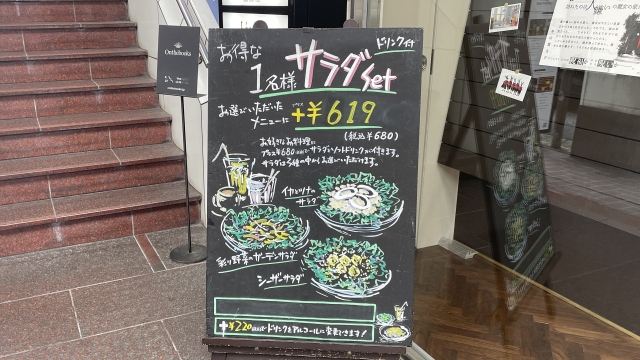 Onthebooks
お得な
ドリンク付
1名様 サラダSet
お選びいただいた
メニューに プラス +¥619
(税込¥680)
お好きなお料理に
プラス¥680(税込)で サラダ、ソフトドリンクが付きます。
サラダは3種の中からお選びいただけます。
イカとツナの
サラダ
彩り野菜のガーデンサラダ
シーザーサラダ
+¥220(税込)でドリンクをアルコールに変更できます!